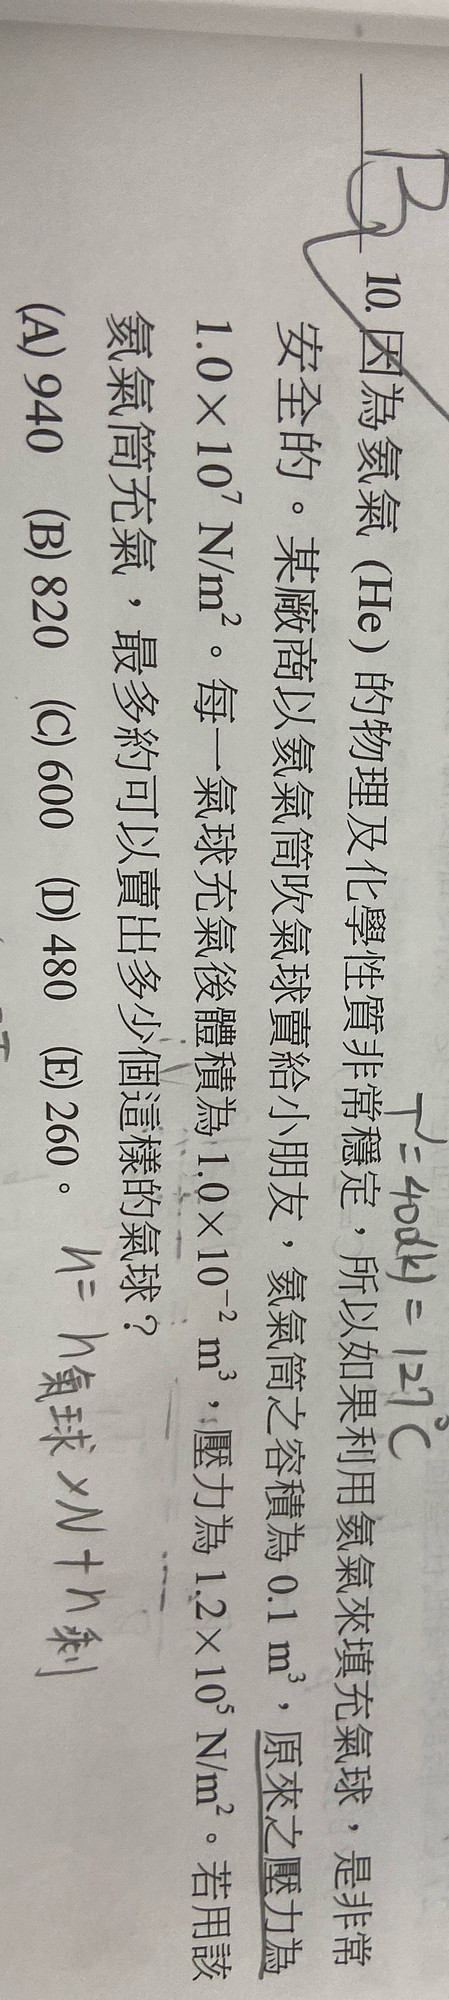 T' = 400(k) = 127°C
B
10. 因為氦氣 (He) 的物理及化學性質非常穩定，所以如果利用氦氣來填充氣球，是非常
安全的。某廠商以氦氣筒吹氣球賣給小朋友，氦氣筒之容積為 0.1 m³，原來之壓力為
1.0×10⁷ N/m²。每一氣球充氣後體積為 1.0×10⁻² m³，壓力為 1.2×10⁵ N/m²。若用該
氦氣筒充氣，最多約可以賣出多少個這樣的氣球？
(A) 940 (B) 820 (C) 600 (D) 480 (E) 260。
n = n氣球 × N + n剩